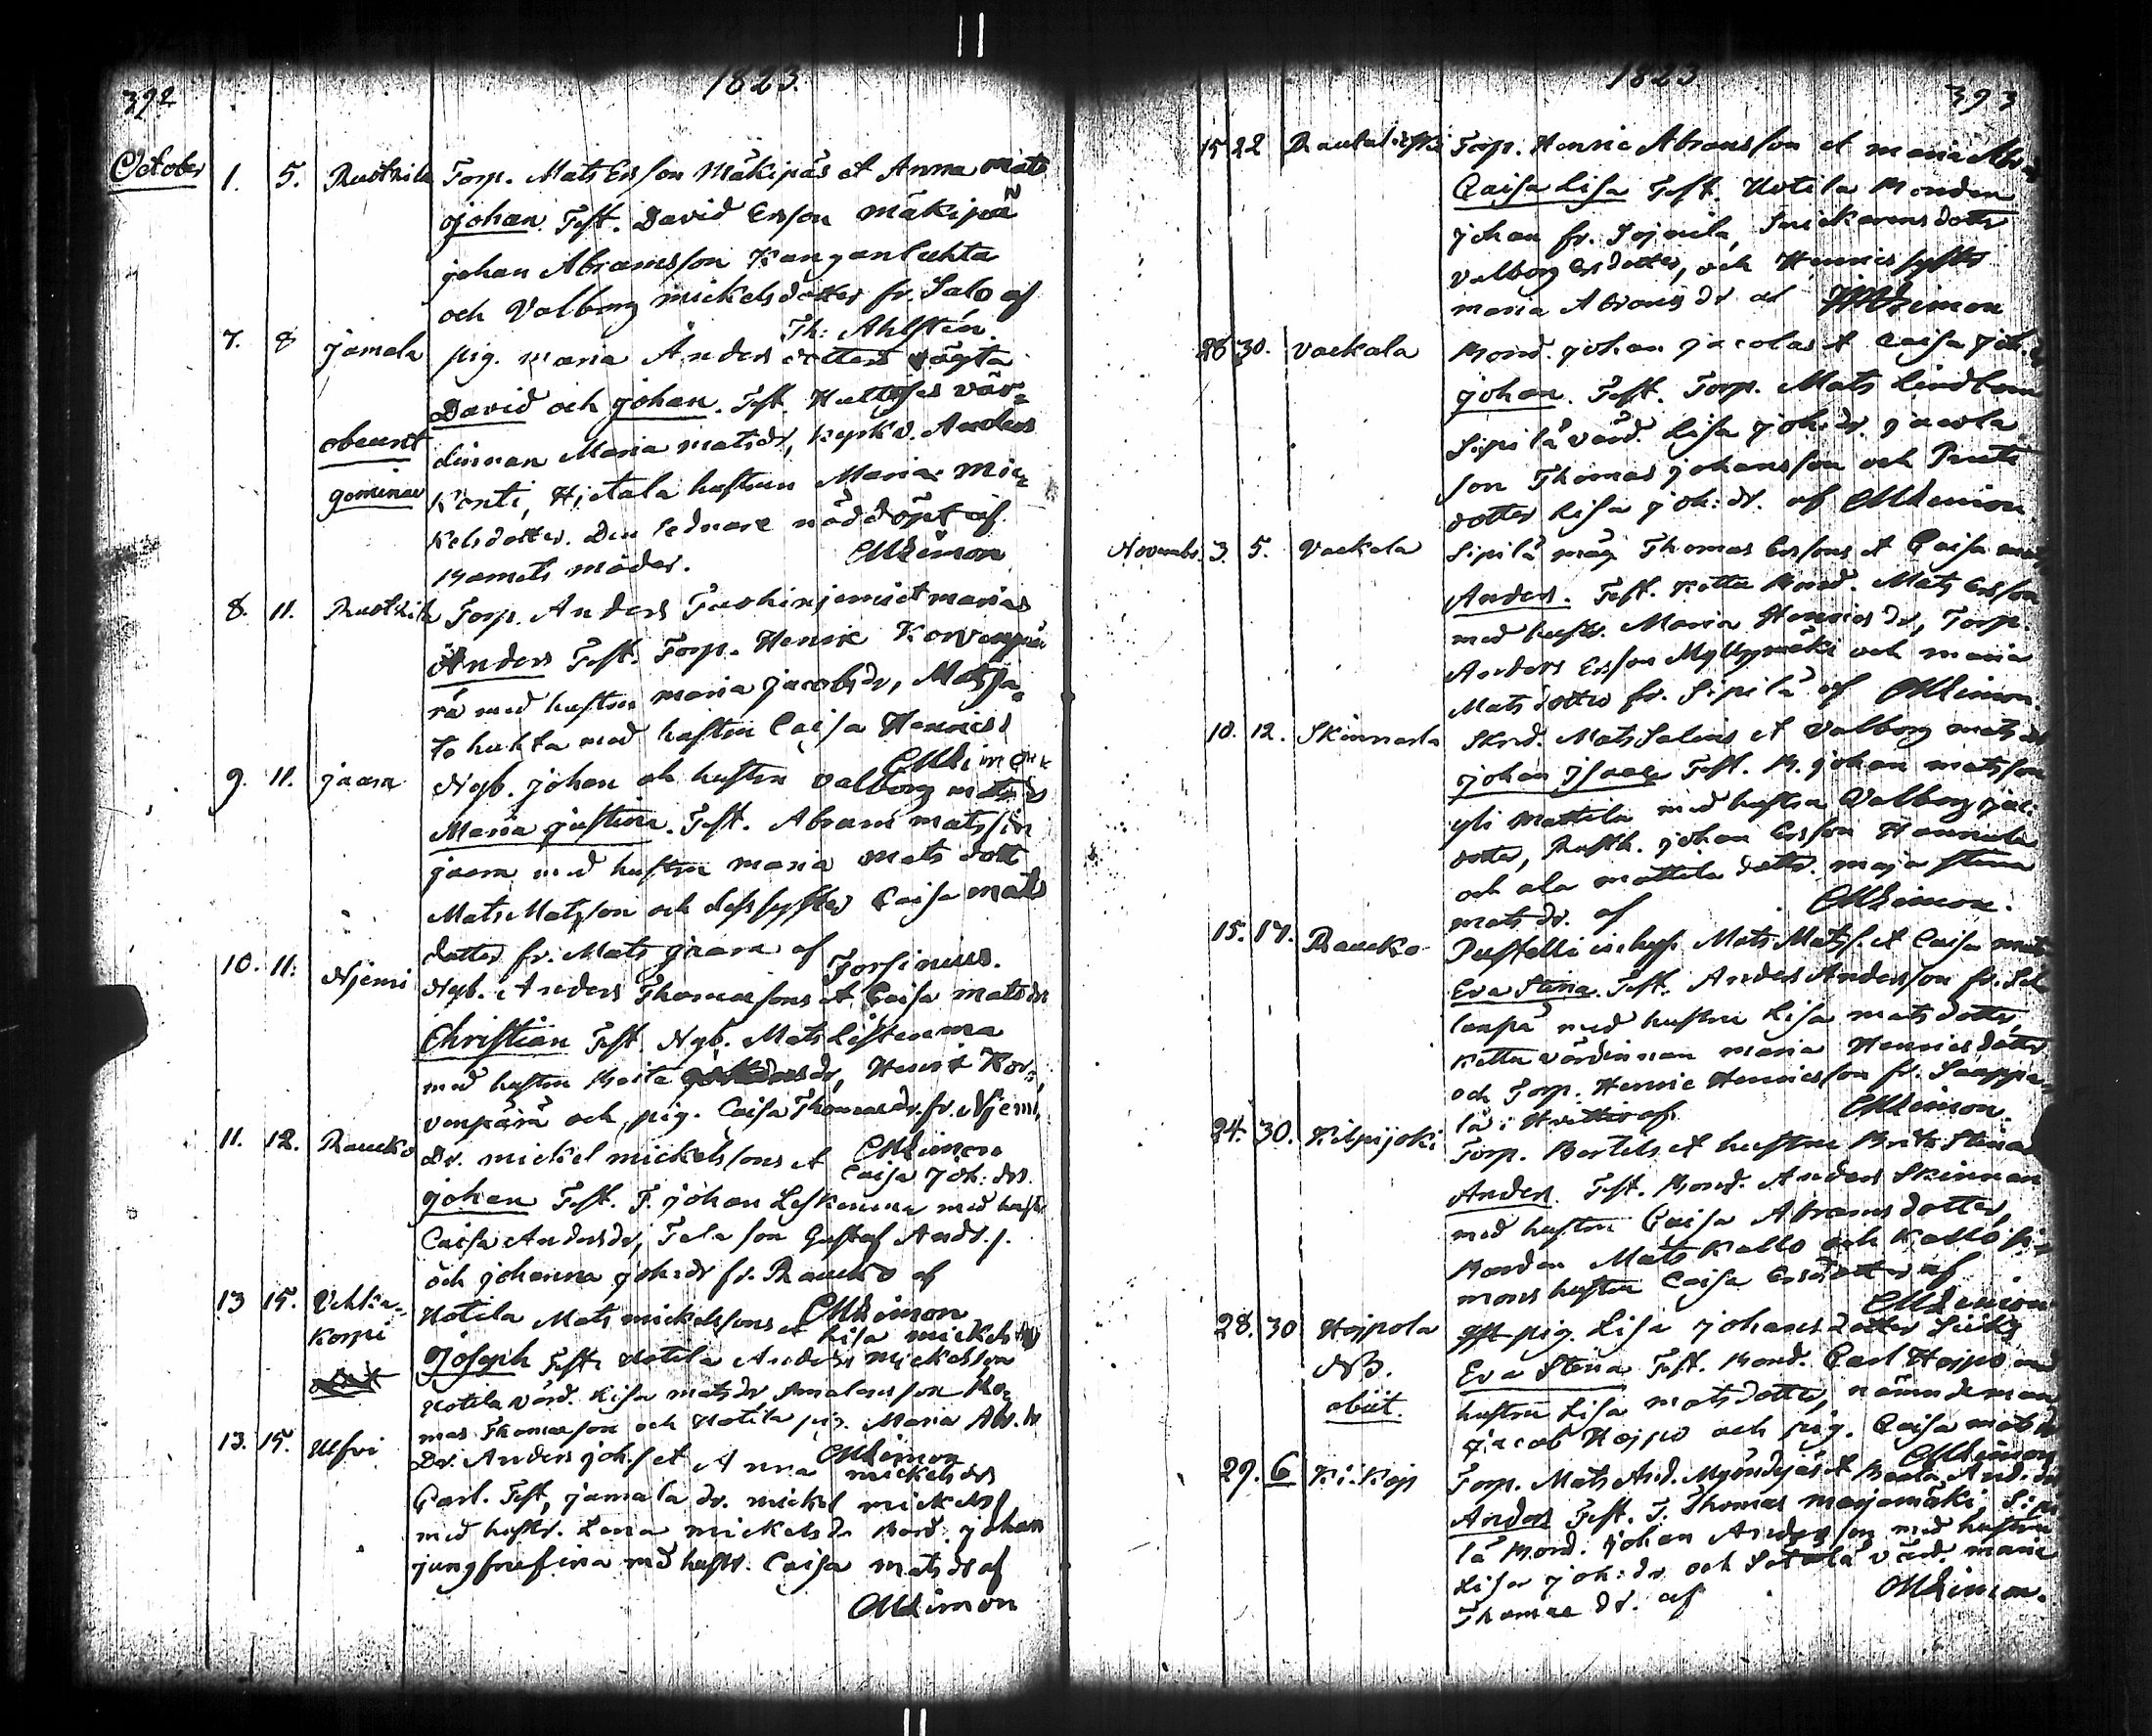 392
1823.
October 1. 5. Rustkila Torp. Mats Ersson Mäkipäs et Anna Mats
Johan. Test. David Ersson Mäkipää
Johan Abramsson Kanganluhta
och Valborg Mickelsdotter fr. Salo af
Th: Ahlstén.
7. 8 Jamala pig. Maria Anders dotters oägta
David och Johan. Test. Huttises vär-
obeunt dinnan Maria Matsdr, Kyrkv. Anders
gemini Konti, Hietala hustrun Maria Mic-
kelsdotter. Den sednare nöddöpt af
Barnets moder. CMLimon
8. 11. Rustkila Torp. Anders et Marias
Anders Test. Torp. Henric Korvenpä-
rä med hustru Maria Jacobsdr, Mats
luhta med hustru Caisa Henrics
CMLimon
9. 11. Jaara Nyb. Johan och hustru Valborg Matsdrs
Maria Justina. Test. Abram Matsson
Jaara med hustru Maria Mats dott
Mats Matsson och dess syster Caisa Mats
dotter fr. Mats Jaara af Forsinius.
10. 11. Njemi Nyb. Anders Thomassons et Caisa Matsdrs
Christian Test. Nyb. Mats Listenmaa
med hustru Beata dr, Henric Kor-
venpärä och pig. Caisa Thomasdr. fr. Njemi
CMLimon
11. 12. Raucko Dr. Mickel Mickelssons et Caisa Joh: drs.
Johan Test. T. Johan Leskenmaa med hust
Caisa Andersdr, Tala son Gustaf Ands.
och Johanna Joh:dr fr. Raucko af
CMLimon
13 15. Vehka- Hotila Mats Mickelssons et Lisa Mickelsdrs
korpi Joseph Test. Hotila Anders Mickelsson
Hotila värd. Lisa Matsdr son Tho-
mas Thomasson och Hotila pig. Maria Abr. dr
CMLimon
13. 15. Ulfvi Dr. Anders Joh. s et Anna Mickelsdrs
Carl. Test, Jamala dr. Mickel Mickels
med hustr. Lena Mickelsdr Bond. Johan
Jungfrufina med hustr. Caisa Matsdr af
CMLimon
1823
393
15 22 Torp. Henric Abramsson et Maria Abr
Caisa Lisa Test. Hotila Bonden
Johan fr. Sojvila, Snickarens dotter
Valborg Ersdotter, och Henrics syster
Maria Abramsdr af CMLimon
28 30. Vackala Bond. Johan Jacolas et Caisa Joh.
Johan. Test. Torp. Mats Lindbom
Sipilä värd. Lisa Joh:dr. Jacola
son Thomas Johansson och
dotter Lisa Joh:dr. af CMLimon.
Novembr. 3. 5. Vackala Sipilä måg Thomas Erssons et Caisa
Anders. Test. Ketta Bond. Mats Ersson
med hustr. Maria Henricsdr, Torp.
Anders Ersson Myllymäki och Maria
Matsdotter fr. Sipilä af CMLimon.
10. 12. Skinnarla Skrd. Mats Salins et Valborg Matsdr
Johan Isaac Test. B. Johan Matsson
Yli Mattila med hustru Valborg Jac:
dotter, Rusth. Johan Ersson Hannula
och ala Mattila dotter. Maja Stina
Matsdr. af CMLimon.
15. 17. Raucko inhys. Mats Matss. et Caisa Mats
Eva Stina. Test. Anders Andersson fr.
med hustru Lisa Mats dotter
Ketta värdinnan Maria Henrics dotter
och Torp. Henric Henricsson fr.
i Huittis af CMLimon.
24. 30. Kilpijoki Torp. Bertels et hustru Brita Stinas
Anders. Test. Bond. Anders Skinnari
med hustru Caisa Abrams dotter,
Bonden Mats Kallo och Kallo Si-
mons hustru Caisa Ersdotter af
CMLimon
28. 30 Hojpola pig. Lisa Johans dotter
NB. Eva Stina Test. Bond. Carl Hojpo med
obiit. hustru Lisa Matsdotter, nämndeman
Jacob Hojpo och pig. Caisa Matsdr
CMLimon
29. 6 Ki. Koj Torp. Mats And. et Beata And. drs
Anders Test. T. Thomas Marjamäki, Sipi
lä Bond. Johan Andersson med hustru
Lisa Joh:dr och värd. Maria
Thomae dr. af CMLimon.